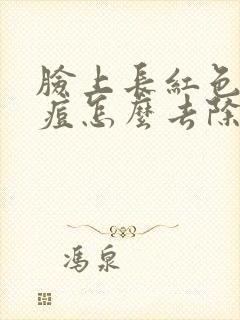 臉上長紅色
痘怎麼去除
馮泉